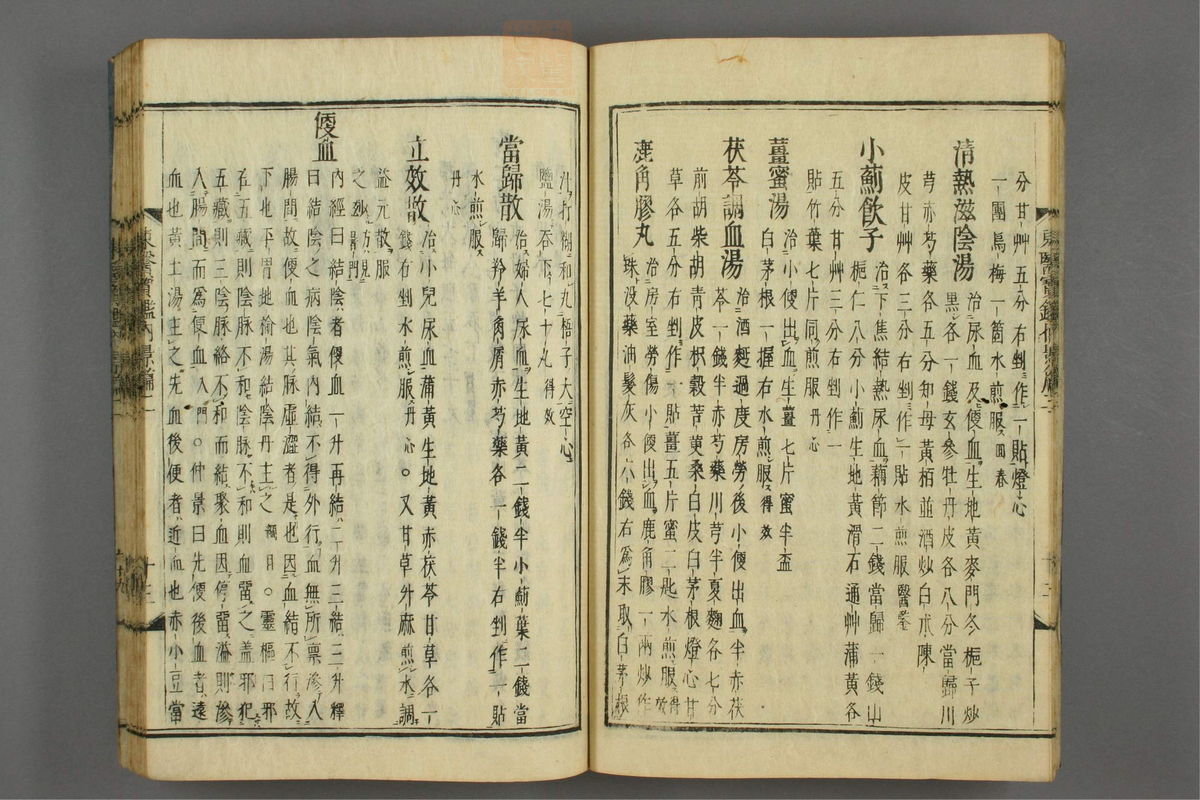 分甘艸五分右剉作一貼燈心
一團烏梅一箇水煎服回春
清熱滋陰湯治尿血及便血生地黃麥門冬梔子炒
黑各一錢玄參牡丹皮各八分當歸川
芎赤芍藥各五分知母黃栢並酒炒白朮陳
皮甘艸各三分右剉作一貼水煎服醫鑒
小薊飲子治下焦結熱尿血藕節二錢當歸一錢山
梔仁八分小薊生地黃滑石通艸蒲黃各
五分甘艸三分右剉作一
貼竹葉七片同煎服丹心
薑蜜湯治小便出血生薑七片蜜半盃
白茅根一握右水煎服得效
茯苓調血湯治酒麪過度房勞後小便出血半赤茯
苓一錢半赤芍藥川芎半夏麴各七分
前胡柴胡青皮枳殼苦莄桑白皮白茅根燈心甘
草各五分右剉作一貼薑五片蜜二匙水煎服得效
鹿角膠丸治房室勞傷小便出血鹿角膠一兩炒作
珠沒藥油髮灰各六錢右爲末取白茅根
汁打糊和丸梧子大空心
鹽湯吞下七十丸得效
當歸散治婦人尿血生地黃二錢半小薊葉二錢當
歸羚羊角屑赤芍藥各一錢半右剉作一貼
水煎服
丹心
立效散治小兒尿血蒲黃生地黃赤茯苓甘草各一
錢右剉水煎服丹心○又甘草升麻煎水調
益元散服
之妙方見
暑門
便血
內經曰結陰者便血一升再結二升三結三升釋
曰結陰之病陰氣內結不得外行血無所禀滲入
腸間故便血也其脉虛澀者是也因血結不行故
下也平胃地榆湯結陰丹主之綱目○靈樞曰邪
在五藏則陰脉不和陰脉不和則血留之盖邪犯
五藏則三陰脉絡不和而結聚血因停留溢則滲
入腸間而爲便血入門○仲景曰先便後血者遠
血也黃土湯主之先血後便者近血也赤小豆當
東醫寶鑑內景篇二